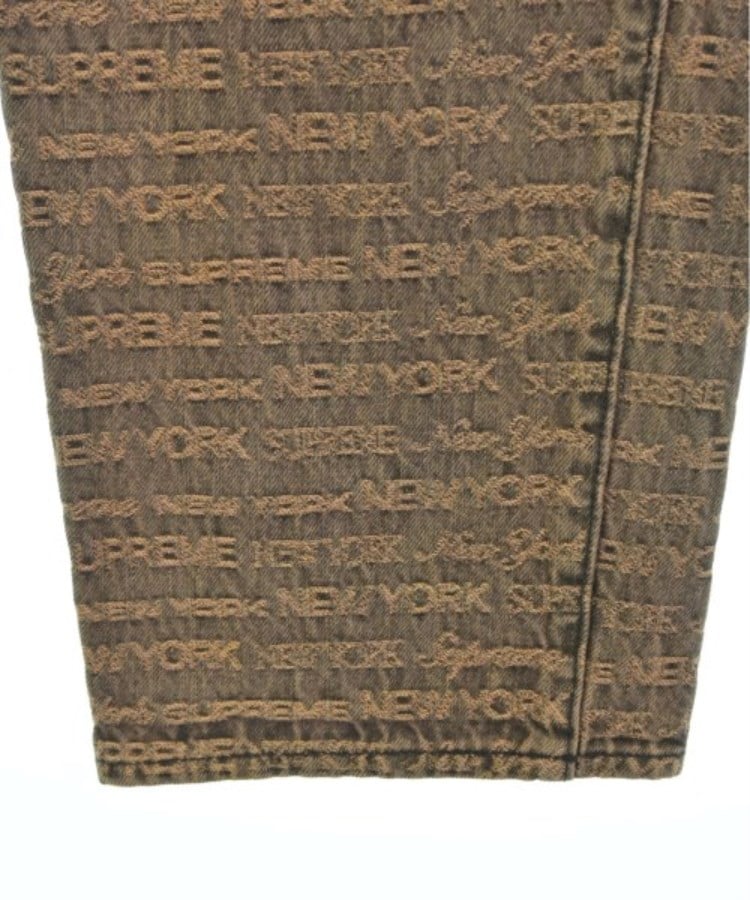 SUPREME NEW YORK New York NEW
NEW YORK NEW YORK SUPRE
EW YORK NEW YORK Supreme ME N
York SUPREME NEW YORK
UPREME NEW YORK New York NEW Y
NEW YORK NEW YORK SUPREME
EW YORK SUPREME New York RK NE
NEW YORK NEW YORK
UPREME NEW YORK New York EW YO
NEW YORK NEW YORK SUPR YORK
W YORK NEW YORK Supreme E NEW
York SUPREME NEW YORK